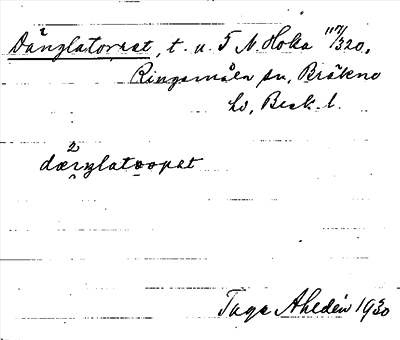 Dänglatorpet, t. u. T N. Hoka 117/320,
Ringamåla sn, Bräkne
hd, Blek. l.
dænglatorpet
Tage Ahldén 1930